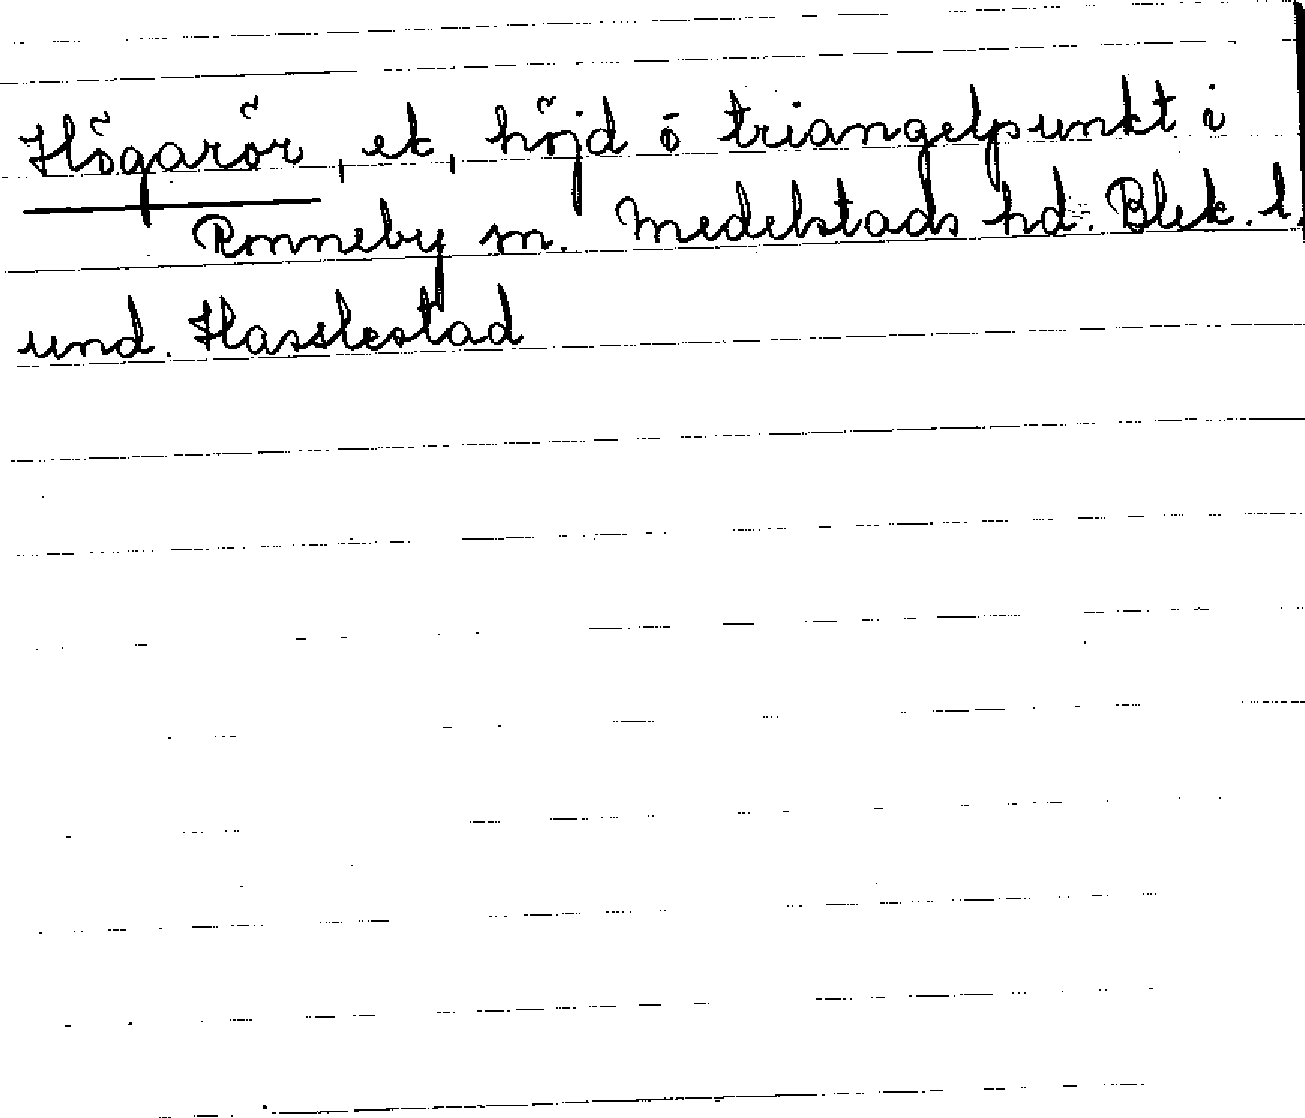 Högarör, ek, höjd ö triangelpunkt i
Ronneby sn. Medelstads hd. Blek. l.
und. Hasslestad